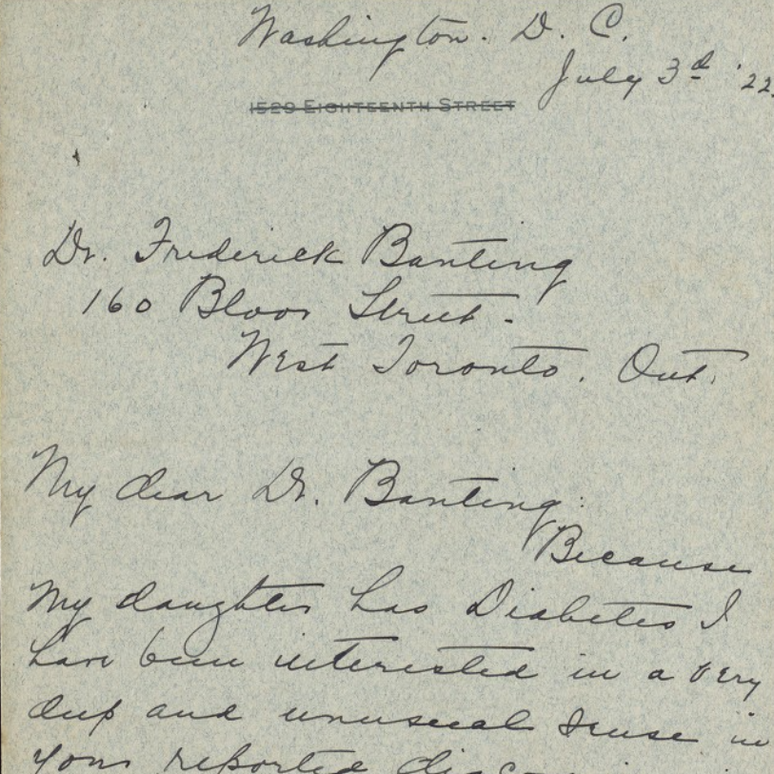 Washington. D. C.
July 3d '22.
1529 EIGHTEENTH STREET
Dr. Frederick Banting
160 Bloor Street.
West Toronto. Ont.
My dear Dr. Banting:
Because
my daughter has Diabetes I
have been interested in a very
deep and unusual sense in
your reported